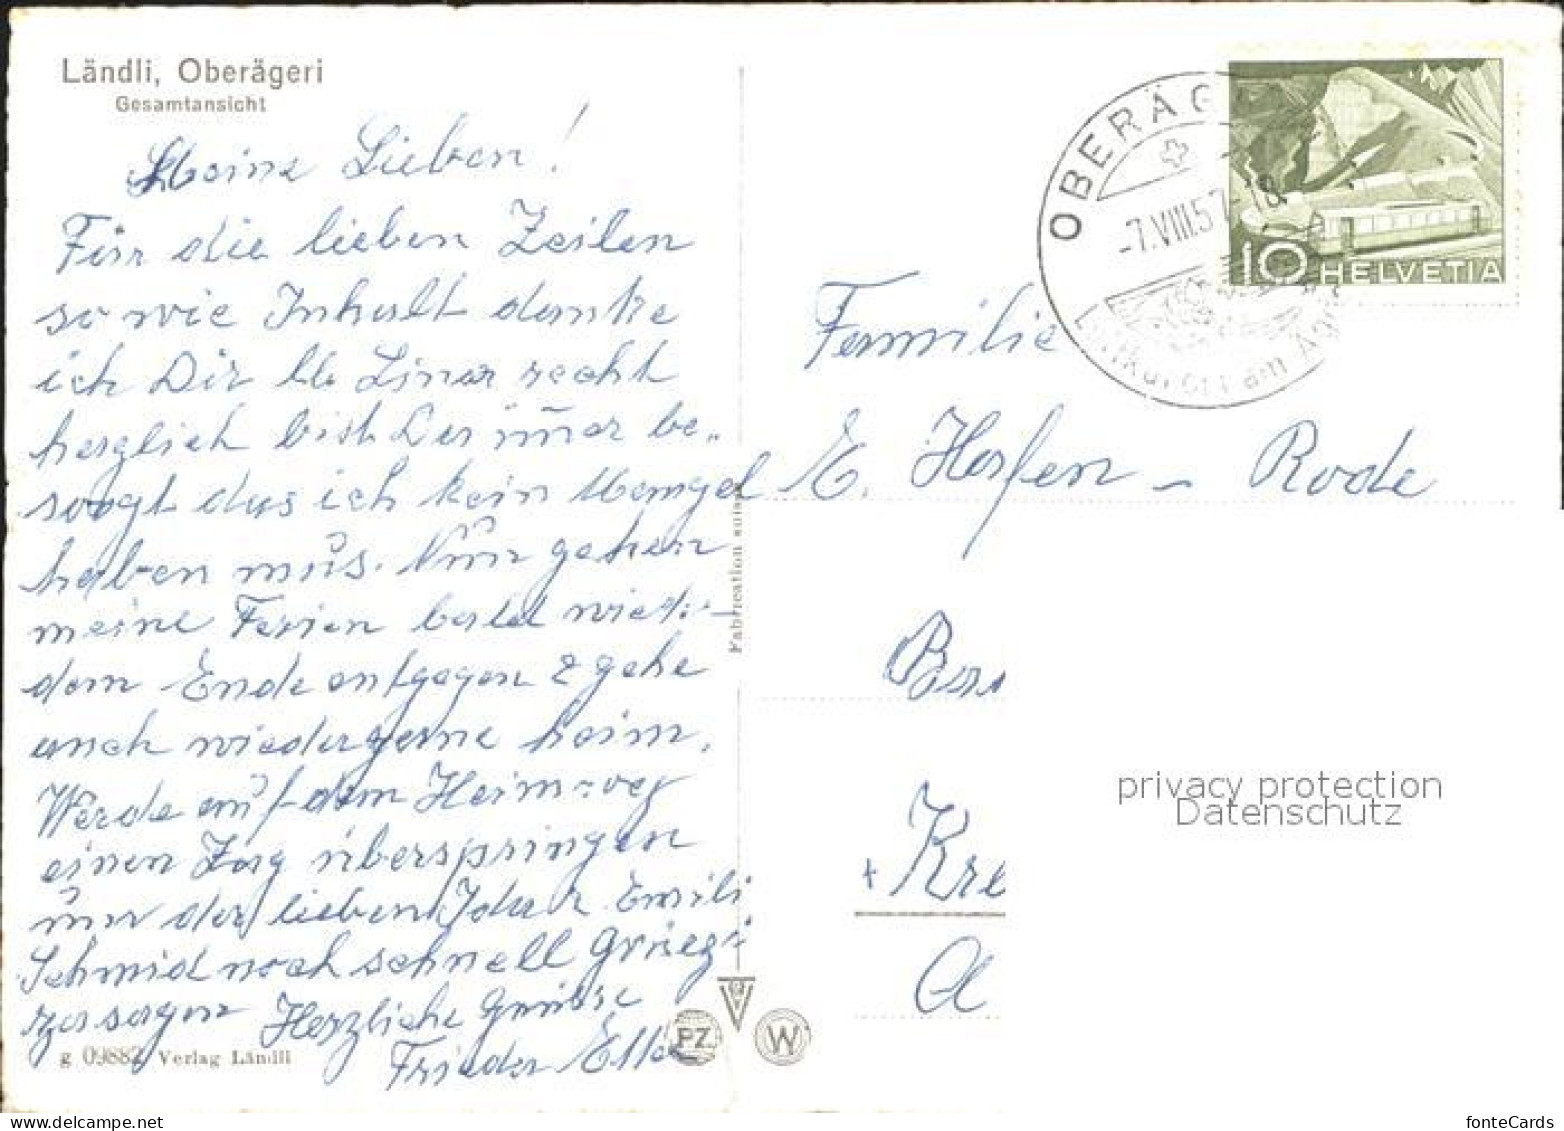 Ländli, Oberägeri
Gesamtansicht
Meine Lieben!
Für die lieben Zeilen
so wie Inhalt danke
ich Dir lb. Lina recht
herzlich bist Du imer be„
sorgt das ich kein Mangel
haben mus. Nun gehen
meine Ferien bald wieder
dem Ende entgegen & gehe
auch wieder gerne heim.
Werde auf dem Heimweg
einen Zug überspringen
um der lieben Emili
Schmid noch schnell Grüezi
zu sagen Herzliche Grüsse
Frieda
g 09882 Verlag Ländli
Fabrication suisse
PZ
W
OBERÄG
-7.VIII.57.18
Luftkurort am Äge
10 HELVETIA
Familie
E. Hofen - Rode
Kre
a
privacy protection
Datenschutz
delcampe.net
fonteCards